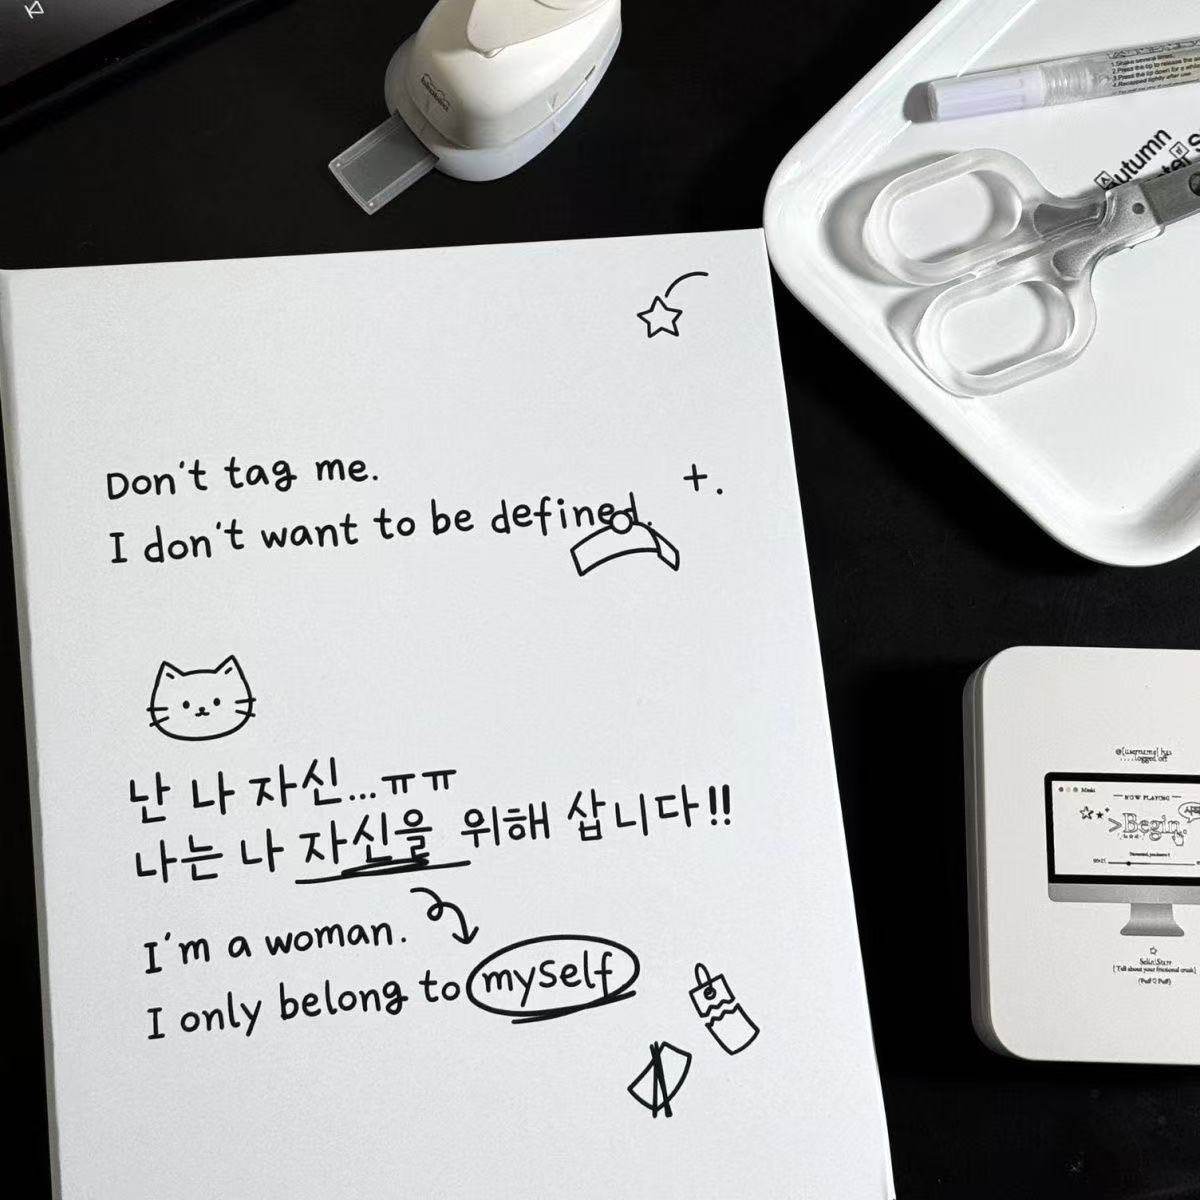 1.Shake several times.
Autumn
Don't tag me.
I don't want to be defined.
+.
난 나 자신...ㅠㅠ
나는 나 자신을 위해 삽니다!!
I'm a woman.
I only belong to myself
@[username] has
....logged off
NOW PLAYING
>Begin.